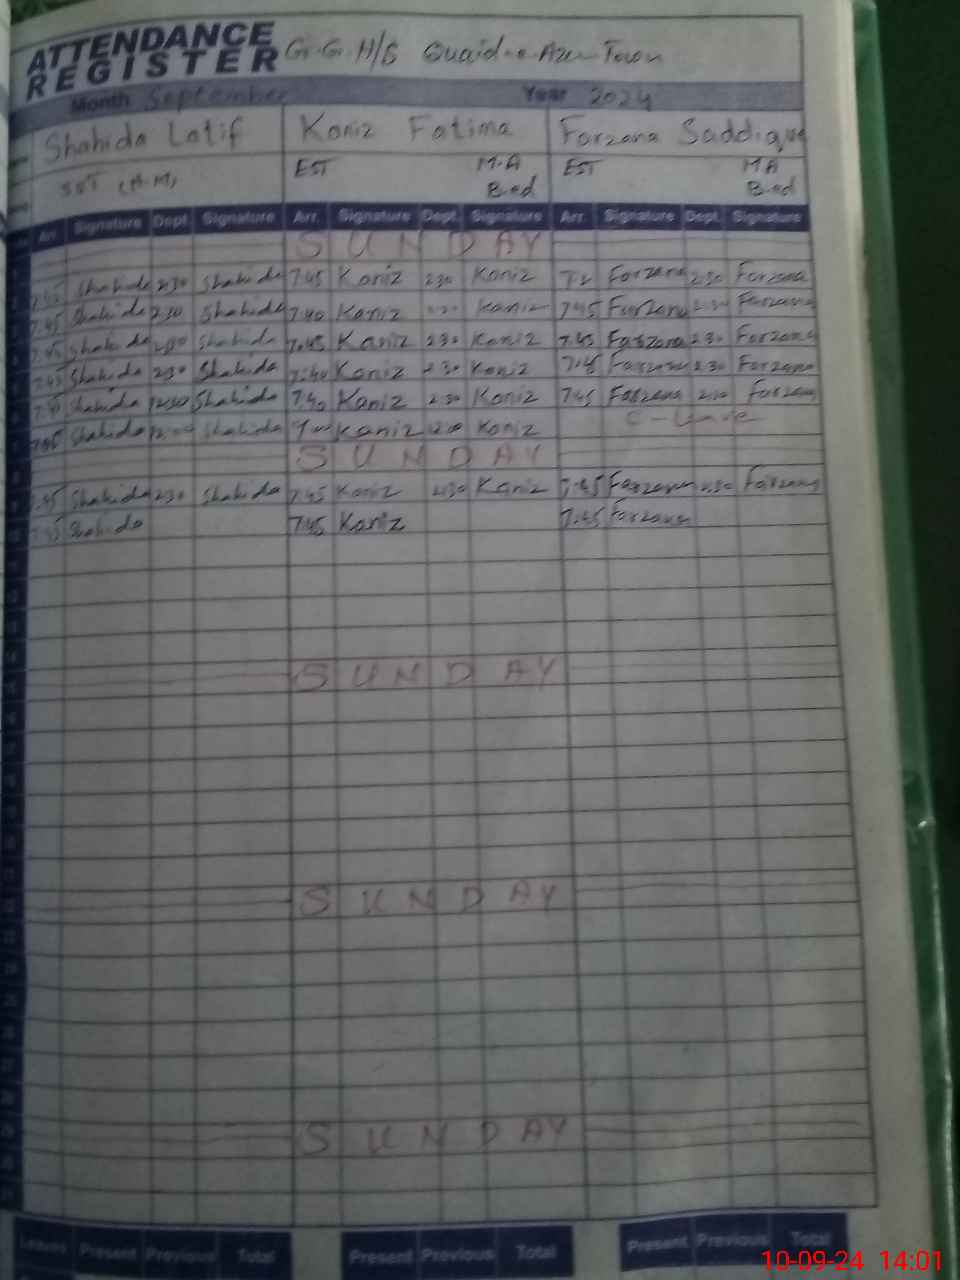 ATTENDANCE
REGISTER G.G.H/S Quaid-e-Azu-Town
Month September Year 2024
Shahida Latif Kaniz Fatima Farzana Saddique
SST EST M.A EST MA
B.ed B.ed
Arr. Signature Dept. Signature Arr. Signature Dept. Signature Arr. Signature Dept. Signature
SUNDAY
Shahida 230 Shahida 7.45 Kaniz 230 Kaniz Farzana 230 Farzana
7.45 Shahida 230 Shahida 7.40 Kaniz Kaniz 745 Farzana Farzana
7.45 Shahida 230 Shahida 7.45 Kaniz 230 Kaniz 7.45 Farzana 230 Farzana
7.45 Shahida 230 Shahida 7:40 Kaniz 230 Kaniz 7:45 Farzana 230 Farzana
Shahida 1230 Shahida 7.40 Kaniz 230 Kaniz 745 Farzana Farzana
Shahida Shahida Kaniz 1200 Kaniz C-Leave
SUNDAY
7.45 Shahida 230 Shahida 7.45 Kaniz 2:30 Kaniz 7:45 Farzana 230 Farzana
Shahida 7.45 Kaniz 7.45 Farzana
SUNDAY
SUNDAY
SUNDAY
Leaves Present Previous Total Present Previous Total Present Previous Total
10-09-24 14:01